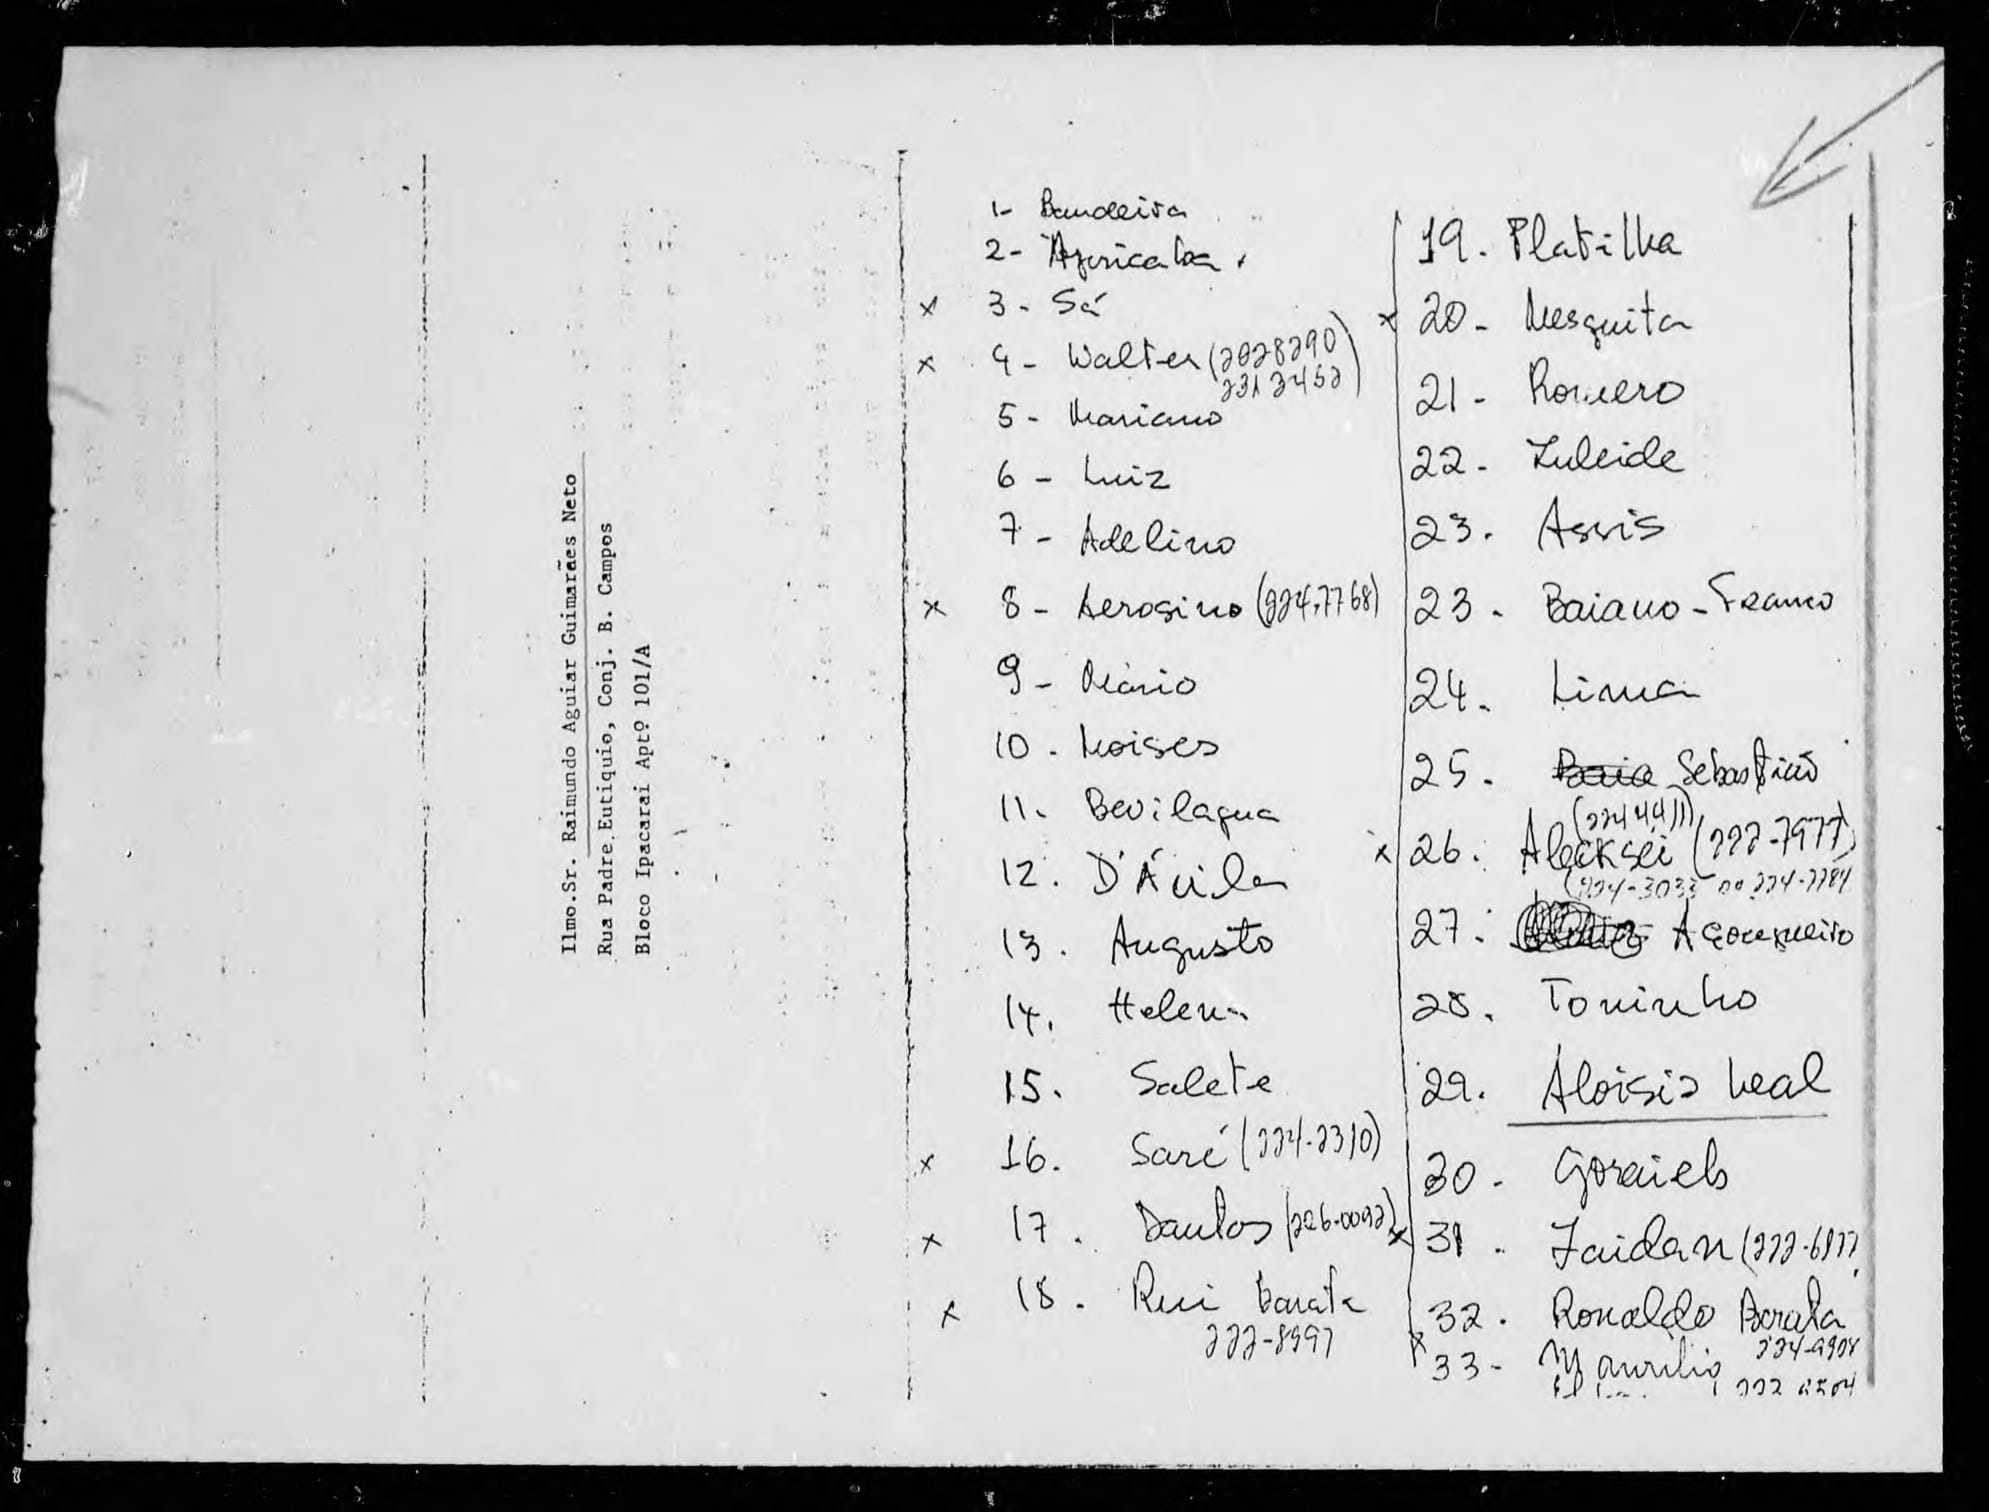 Ilmo.Sr. Raimundo Aguiar Guimarães Neto
Rua Padre Eutiquio, Conj. B. Campos
Bloco Ipacarai Aptº 101/A
1- Bandeira
2- Ajuricaba
x 3 - Sá
x 4 - Walter (2228290
231 2452)
5 - Mariano
6 - Luiz
7 - Adelino
x 8 - Aerosino (224.7768)
9 - Mário
10 - Moises
11. Bevilaqua
12. D'Ávila
13. Augusto
14. Helena
15. Salete
x 16. Saré (224-2310)
x 17. Dautos (226-0092)
x 18. Rui Barata
222-8997
19. Platilha
x 20 - Mesquita
21 - Romero
22 - Zuleide
23. Assis
23 - Baiano - Franco
24. Lima
25. Baia Sebastião
(2244411)
x 26. Alecksei (222-7977)
(224-3033 ou 224-2784
27. Açougueiro
28. Toninho
29. Aloisio Leal
30 - Goraieb
x 31. Zaidan (222-6177
32. Ronaldo Barata
224-9908
x 33 - Maurilio
222